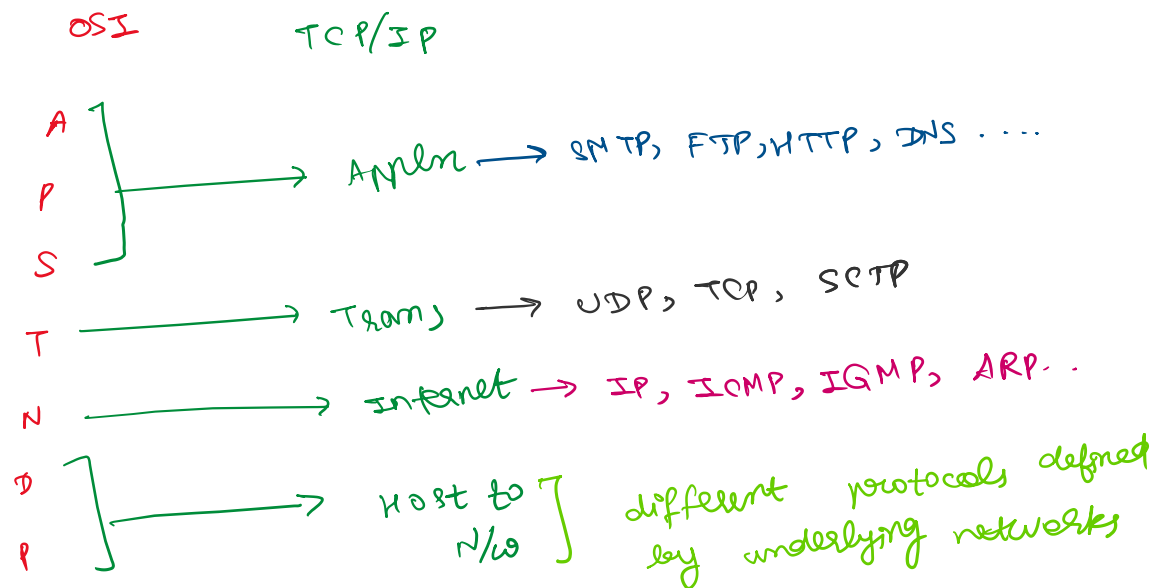 OSI TCP/IP
A
P
S
Appln → SMTP, FTP, HTTP, DNS ....
T → Trans → UDP, TCP, SCTP
N → Internet → IP, ICMP, IGMP, ARP..
D
P
Host to
N/w
different protocols defined
by underlying networks